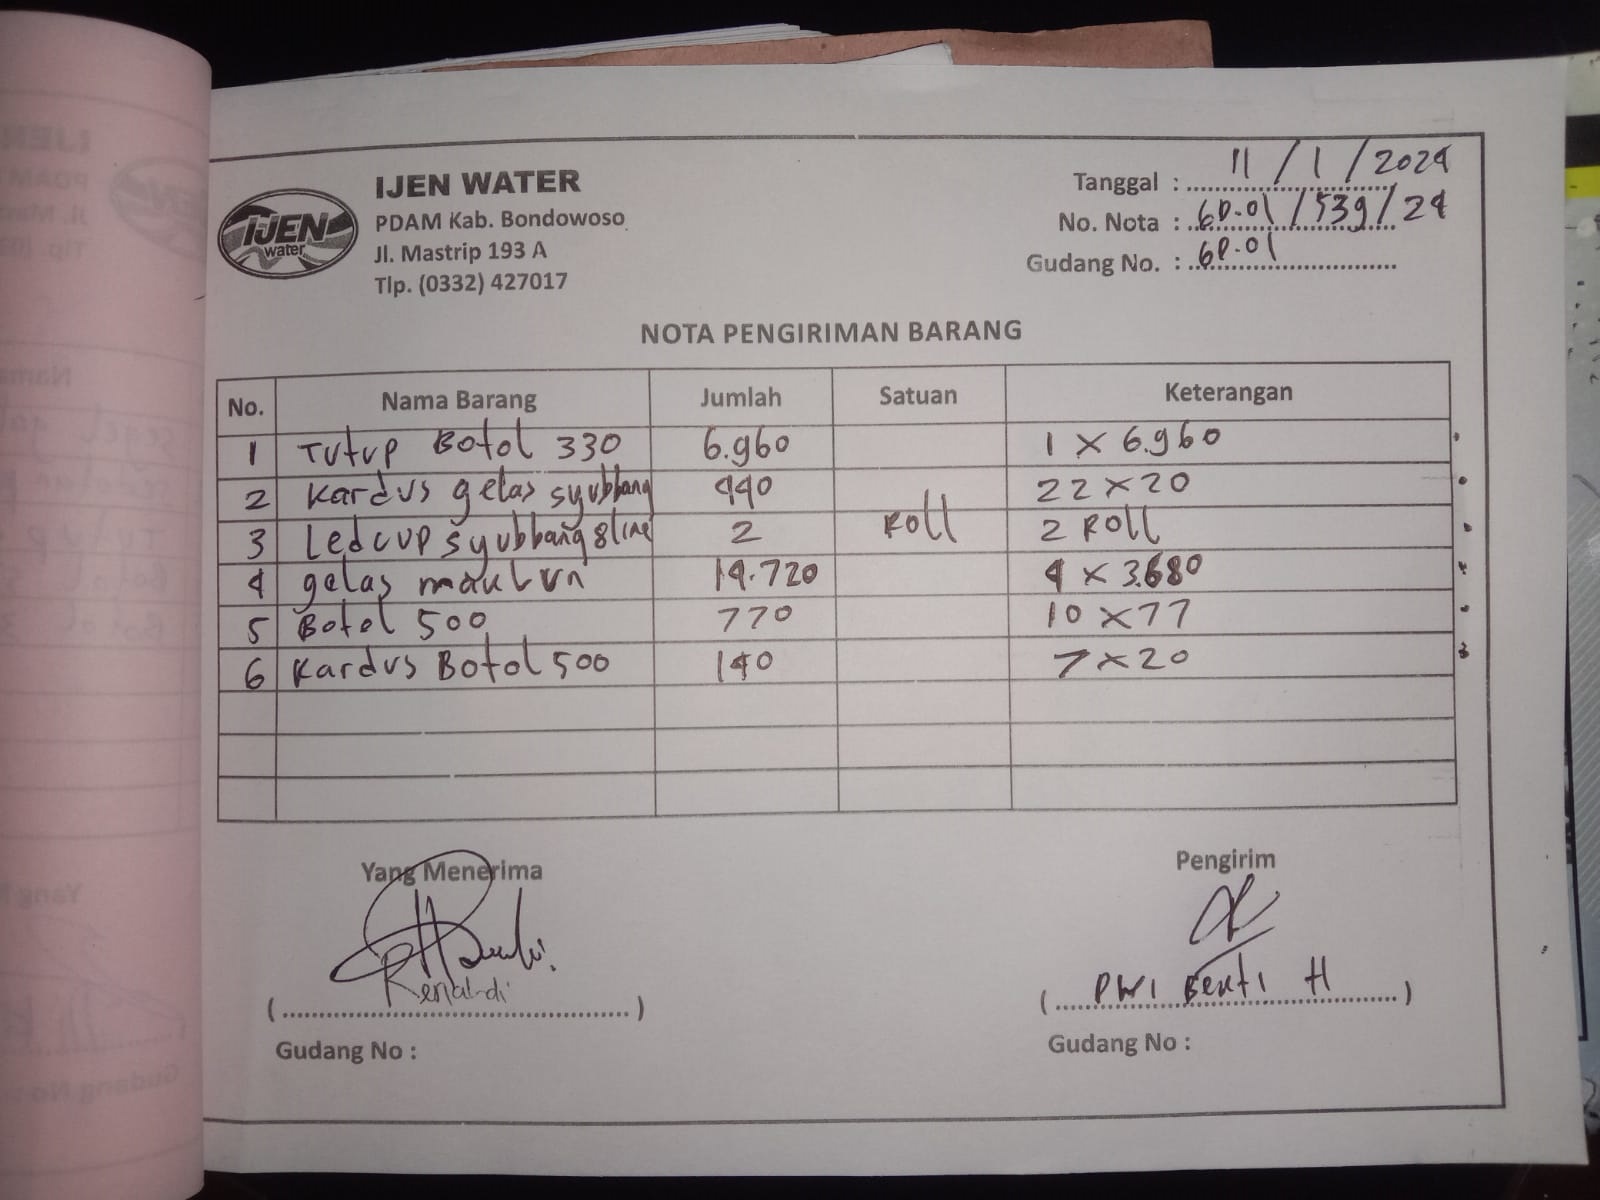 IJEN
water
IJEN WATER
PDAM Kab. Bondowoso
Jl. Mastrip 193 A
Tlp. (0332) 427017
Tanggal : 11 / 1 / 2024
No. Nota : GD.01 / 539 / 24
Gudang No. : GD.01
NOTA PENGIRIMAN BARANG
No. Nama Barang Jumlah Satuan Keterangan
1 Tutup Botol 330 6.960 1 x 6.960
2 Kardus gelas syubbang 440 22 x 20
3 Ledcup syubbang 8 line 2 Roll 2 Roll
4 gelas maklun 14.720 4 x 3.680
5 Botol 500 770 10 x 77
6 Kardus Botol 500 140 7 x 20
Yang Menerima Pengirim
Renaldi
( ) ( DWI Bekti H )
Gudang No : Gudang No :